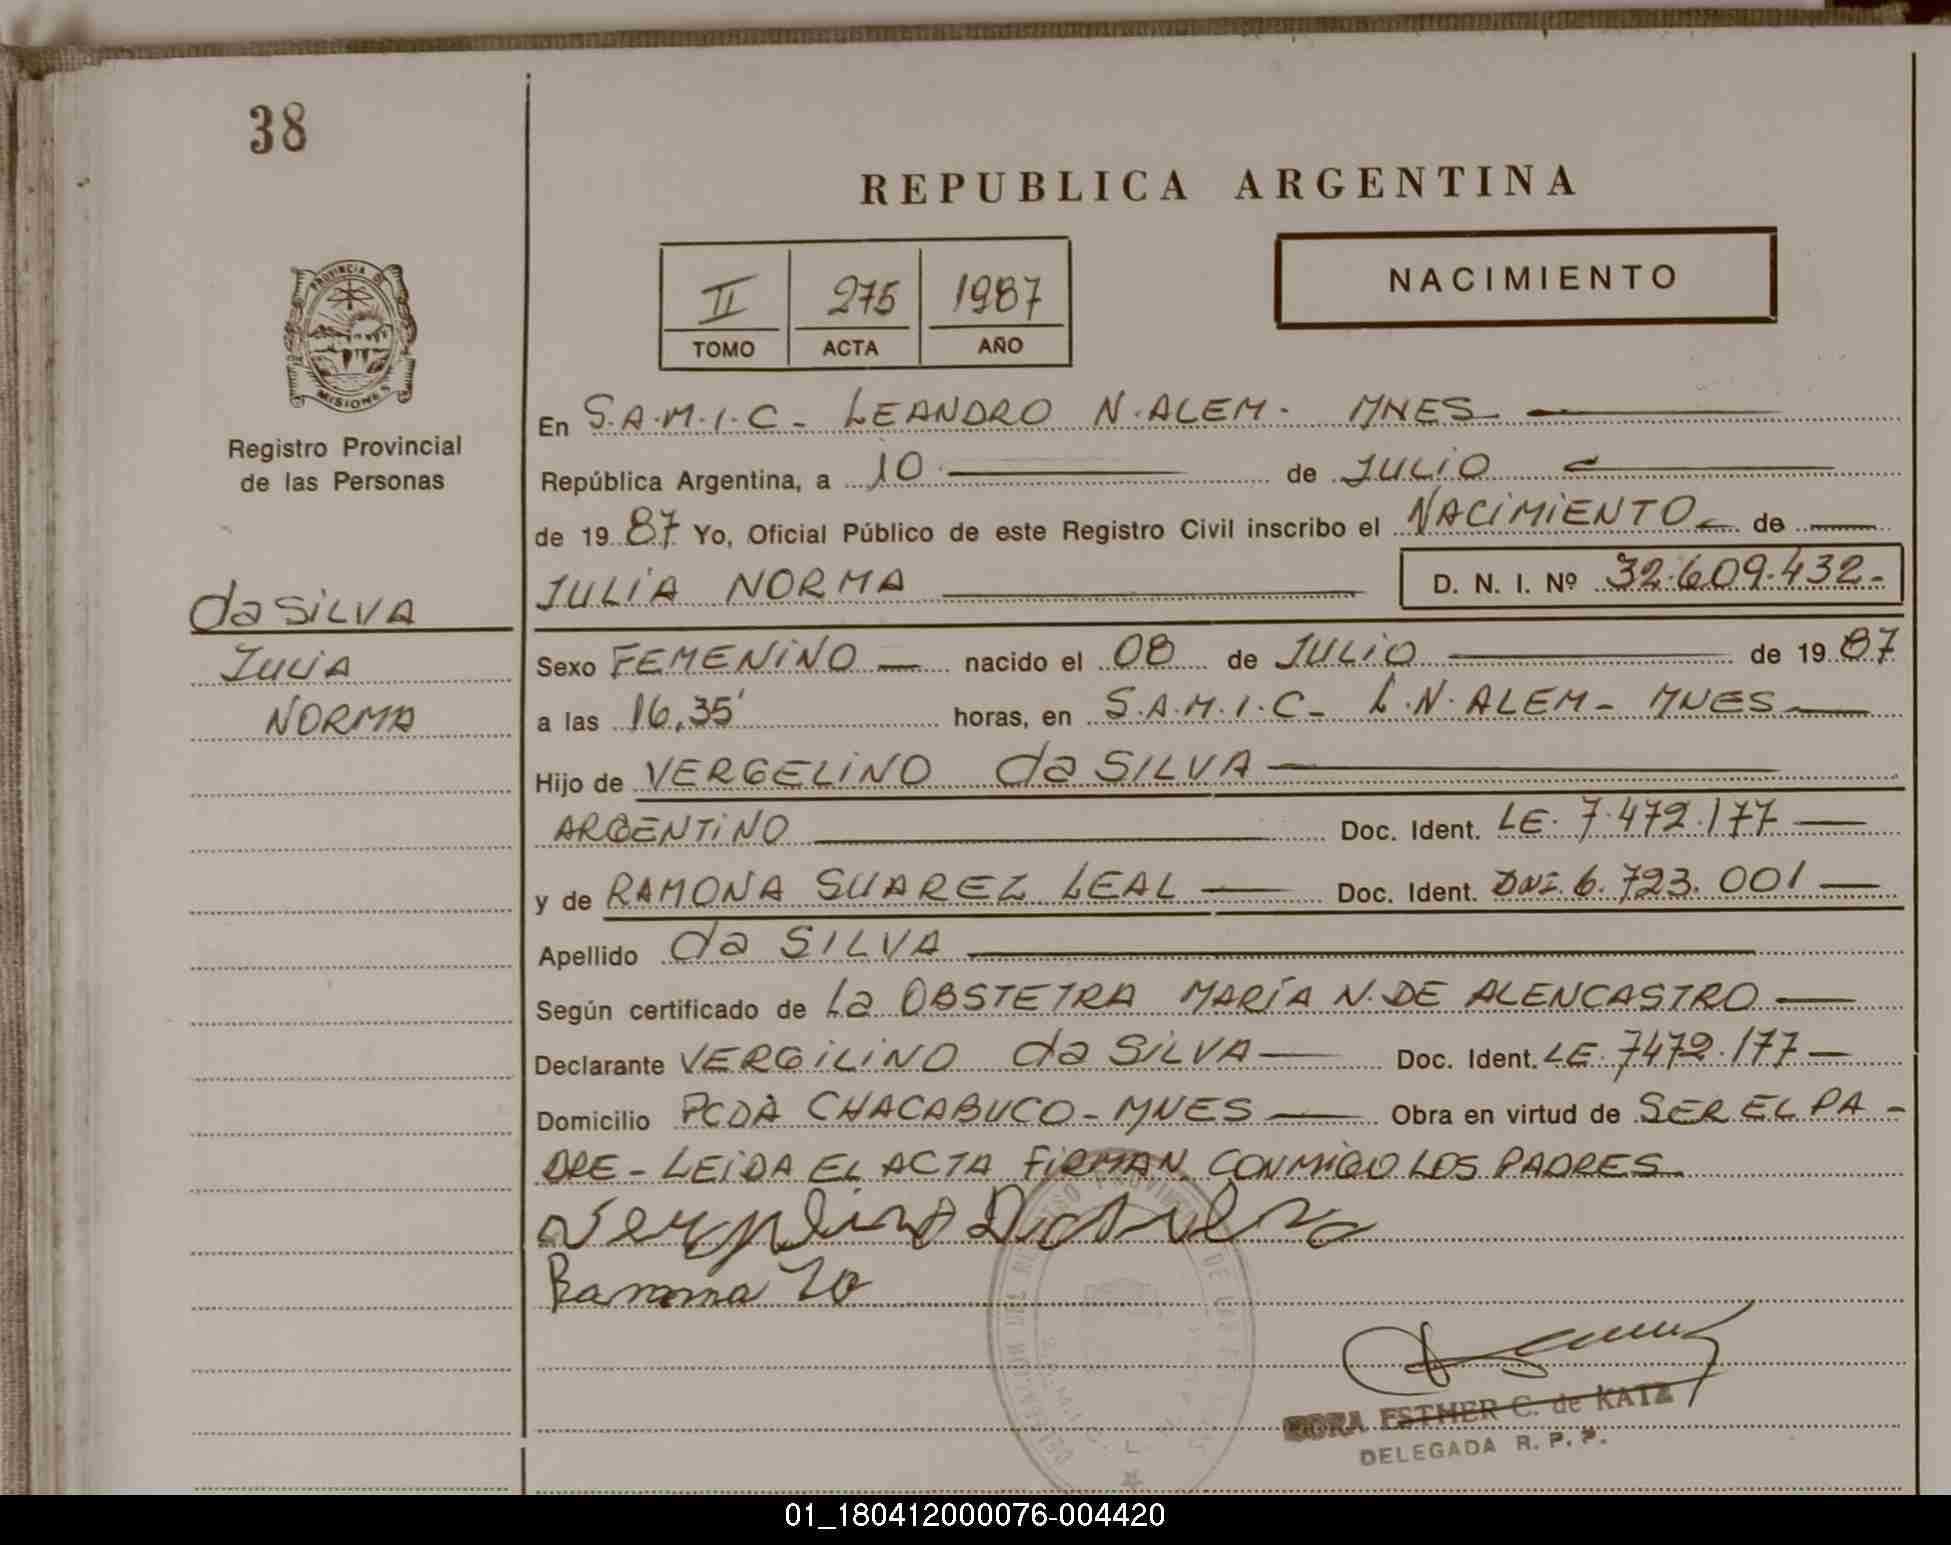 38
REPUBLICA ARGENTINA
II 275 1987
TOMO ACTA AÑO
NACIMIENTO
PROVINCIA DE
MISIONES
Registro Provincial
de las Personas
da SILVA
JULIA
NORMA
En S.A.M.I.C - LEANDRO N. ALEM - MNES
República Argentina, a 10 de JULIO
de 19 87 Yo, Oficial Público de este Registro Civil inscribo el NACIMIENTO de
JULIA NORMA D. N. I. Nº 32.609.432.-
Sexo FEMENINO nacido el 08 de JULIO de 19 87
a las 16,35' horas, en S.A.M.I.C - L.N. ALEM - MNES
Hijo de VERGELINO da SILVA
ARGENTINO Doc. Ident. LE. 7.472.177
y de RAMONA SUAREZ LEAL Doc. Ident. DNI. 6.723.001
Apellido da SILVA
Según certificado de La OBSTETRA MARÍA N. DE ALENCASTRO
Declarante VERGILINO da SILVA Doc. Ident. LE. 7472.177
Domicilio PCDA CHACABUCO - MNES Obra en virtud de SER EL PA -
DRE - LEIDA EL ACTA FIRMAN CONMIGO LOS PADRES
Ramona
ESTHER C. de KATZ
DELEGADA R. P. P.
01_180412000076-004420